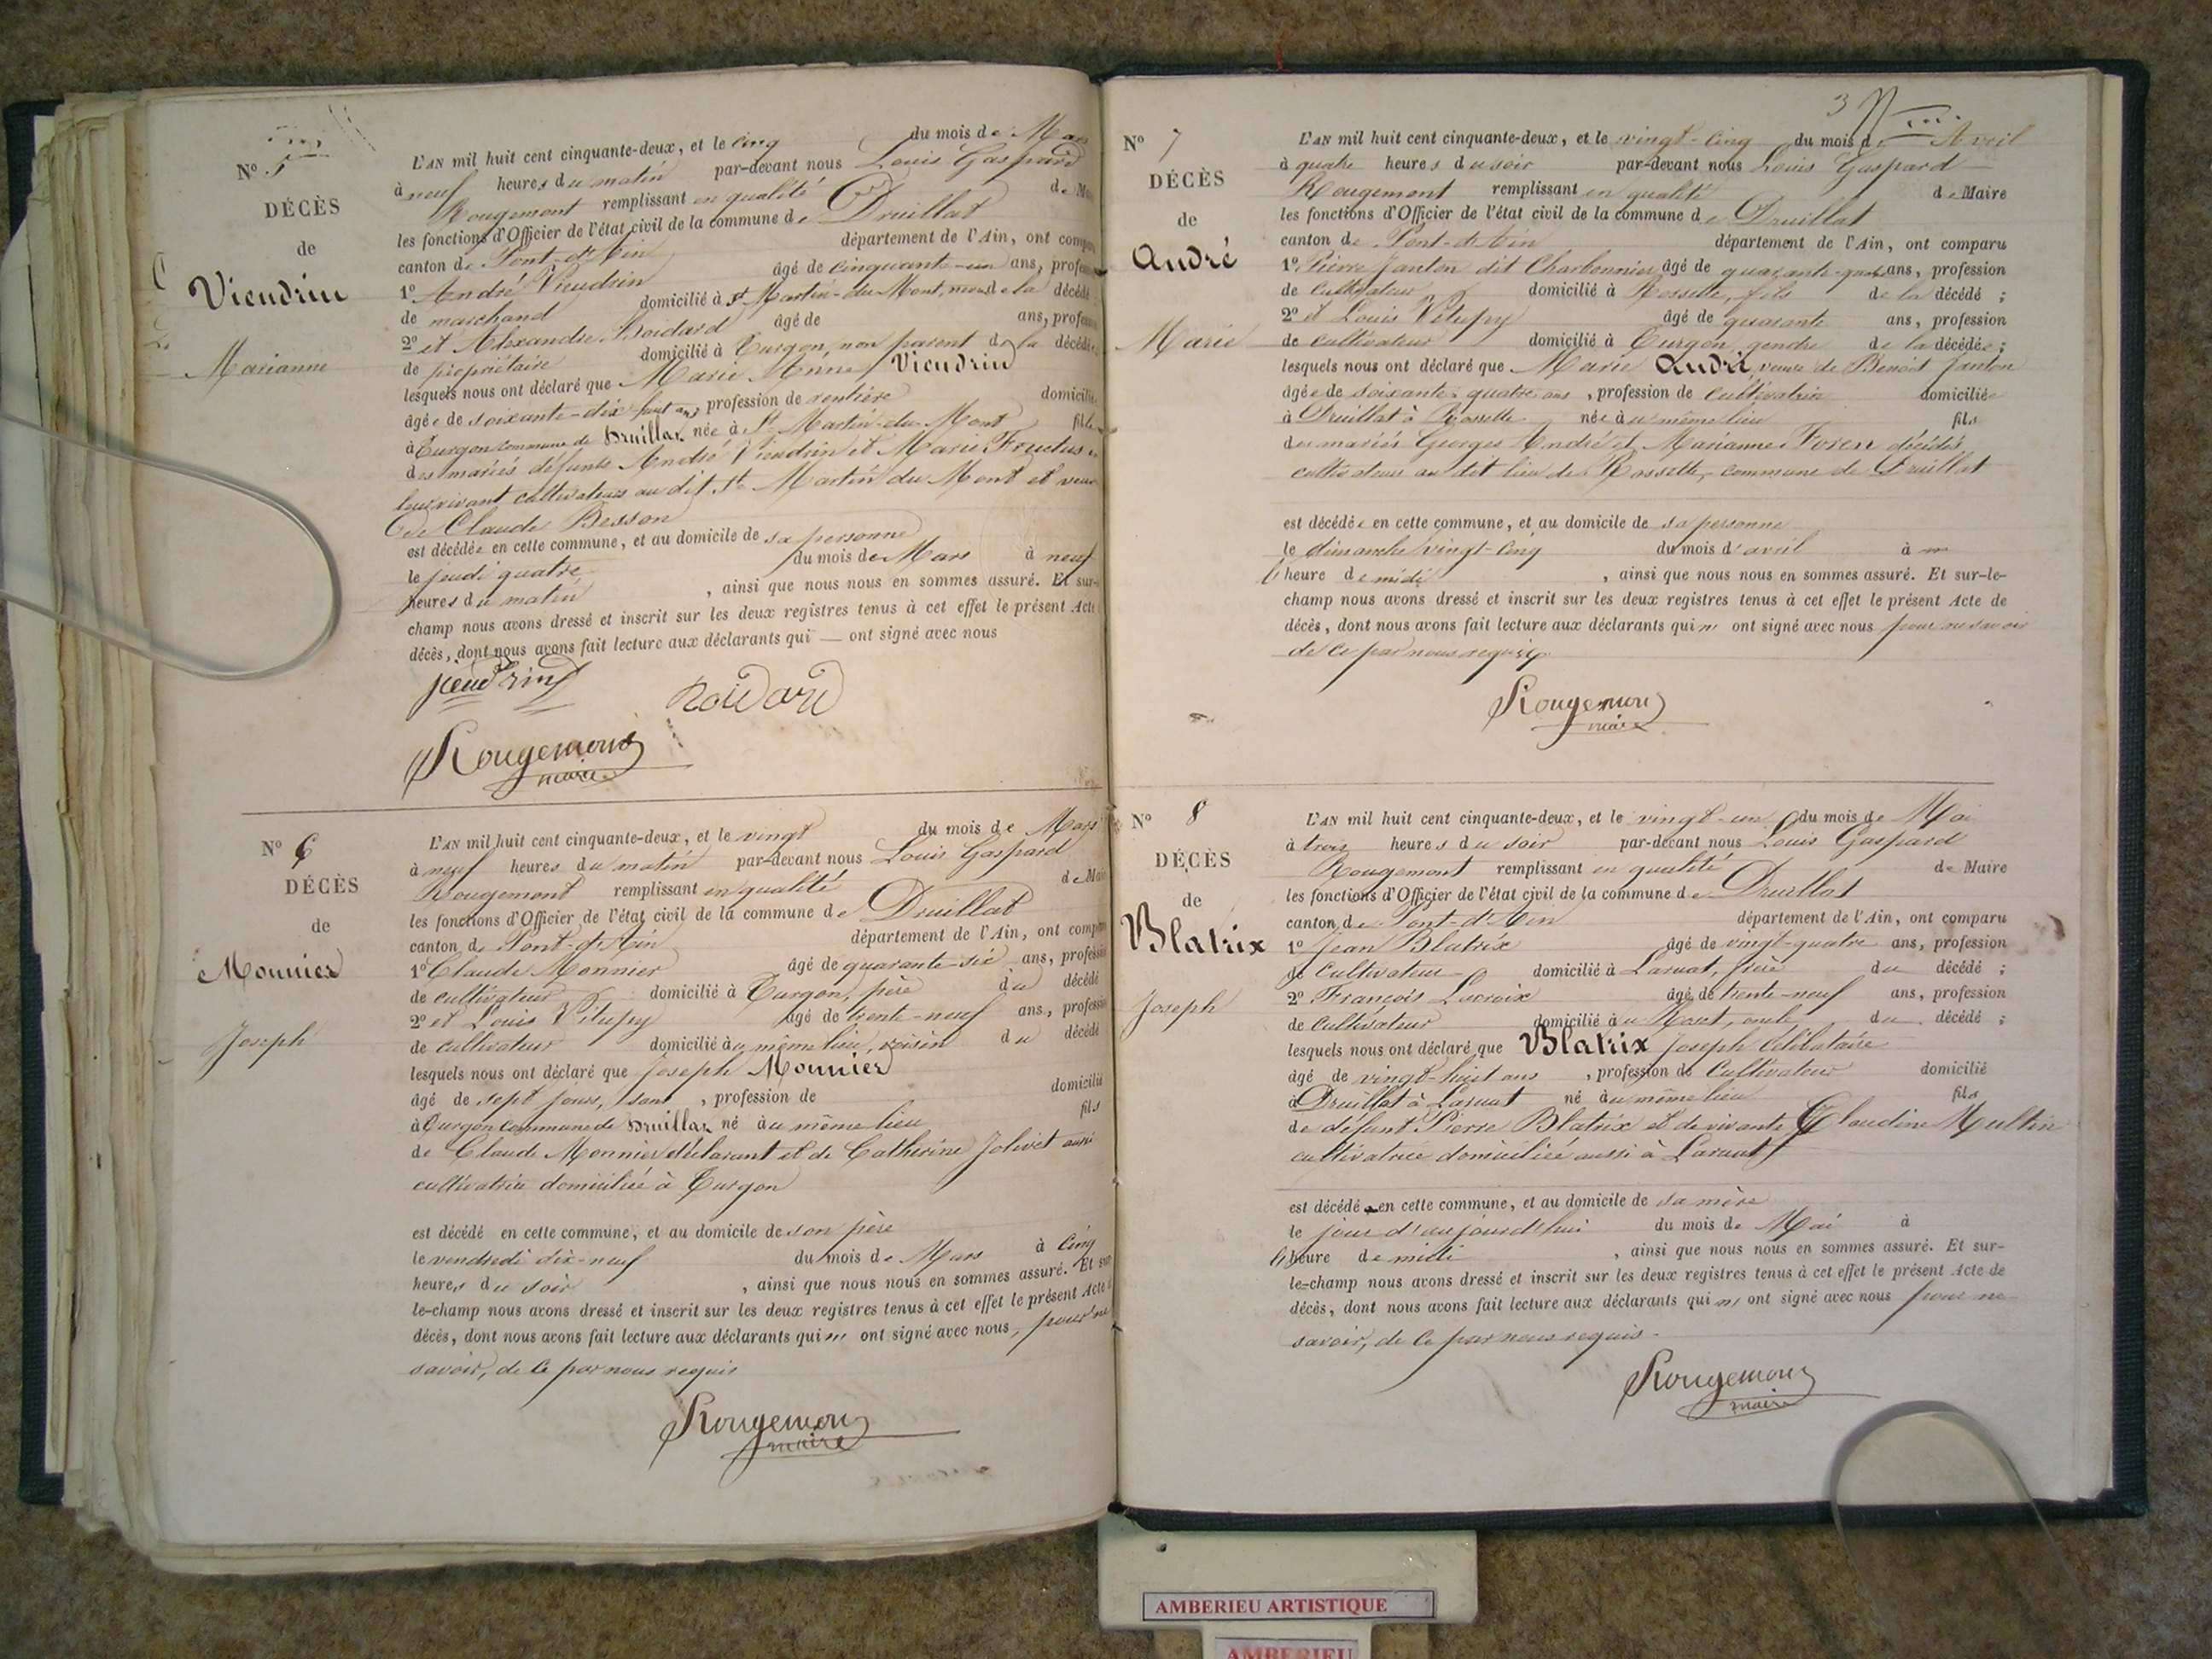 N° 5
DÉCÈS
de
Vieudrin
Marianne
L'AN mil huit cent cinquante-deux, et le cinq du mois de Mars
à neuf heures du matin par-devant nous Louis Gaspard
Rougemont remplissant en qualité de Ma
les fonctions d'Officier de l'état civil de la commune de Druillat
canton de Pont-d'Ain département de l'Ain, ont compa
1° André Vieudrin âgé de cinquante-un ans, profe
de marchand domicilié à St Martin-du-Mont, neveu de la décédé
2° et Alexandre Boidard âgé de ans, profe
de propriétaire domicilié à Turgon, non parent de la décédé
lesquels nous ont déclaré que Marie Anne Vieudrin
âgée de soixante-dix huit ans, profession de rentière domicili
à Turgon commune de Druillat née à St Martin-du-Mont fille
des mariés défunts André Vieudrin et Marie Fructus
leur vivant cultivateurs au dit St Martin du Mont et veuve
de Claude Besson
est décédée en cette commune, et au domicile de sa personne
le jeudi quatre du mois de Mars à neuf
heures du matin , ainsi que nous nous en sommes assuré. Et sur-
champ nous avons dressé et inscrit sur les deux registres tenus à cet effet le présent Acte
décès, dont nous avons fait lecture aux déclarants qui — ont signé avec nous
Vieudrin
Boidard
Rougemont
maire
N° 6
DÉCÈS
de
Monnier
Joseph
L'AN mil huit cent cinquante-deux, et le vingt du mois de Mars
à neuf heures du matin par-devant nous Louis Gaspard
Rougemont remplissant en qualité de Mai
les fonctions d'Officier de l'état civil de la commune de Druillat
canton de Pont-d'Ain département de l'Ain, ont comp
1° Claude Monnier âgé de quarante-six ans, profession
de cultivateur domicilié à Turgon, père du décédé
2° et Louis Vilupy âgé de trente-neuf ans, profession
de cultivateur domicilié au même lieu, voisin du décédé
lesquels nous ont déclaré que Joseph Monnier
âgé de sept jours, sans , profession de domicilié
à Turgon commune de Druillat né au même lieu fils
de Claude Monnier déclarant et de Catherine Jolivet aussi
cultivatrice domiciliée à Turgon
est décédé en cette commune, et au domicile de son père
le vendredi dix-neuf du mois de Mars à cinq
heures du soir , ainsi que nous nous en sommes assuré. Et sur
le-champ nous avons dressé et inscrit sur les deux registres tenus à cet effet le présent Acte d
décès, dont nous avons fait lecture aux déclarants qui n' ont signé avec nous, pour ne
savoir, de ce par nous requis
Rougemont
maire
3
N° 7
DÉCÈS
de
André
Marie
L'AN mil huit cent cinquante-deux, et le vingt-cinq du mois d' Avril
à quatre heures du soir par-devant nous Louis Gaspard
Rougemont remplissant en qualité de Maire
les fonctions d'Officier de l'état civil de la commune de Druillat
canton de Pont-d'Ain département de l'Ain, ont comparu
1° Pierre Janton dit Charbonnier âgé de quarante-quatre ans, profession
de cultivateur domicilié à Rossette, fils de la décédé ;
2° et Louis Vilupy âgé de quarante ans, profession
de cultivateur domicilié à Turgon, gendre de la décédée ;
lesquels nous ont déclaré que Marie André veuve de Benoit Janton
âgée de soixante-quatre ans , profession de cultivatrice domiciliée
à Druillat à Rossette née au même lieu fils
des mariés Georges André et Marianne Foren décédés,
cultivateurs au dit lieu de Rossette, commune de Druillat
est décédée en cette commune, et au domicile de sa personne
le dimanche vingt-cinq du mois d'avril à
l'heure de midi , ainsi que nous nous en sommes assuré. Et sur-le-
champ nous avons dressé et inscrit sur les deux registres tenus à cet effet le présent Acte de
décès, dont nous avons fait lecture aux déclarants qui n' ont signé avec nous pour ne savoir
de ce par nous requis
Rougemont
maire
N° 8
DÉCÈS
de
Blatrix
Joseph
L'AN mil huit cent cinquante-deux, et le vingt-un du mois de Mai
à trois heures du soir par-devant nous Louis Gaspard
Rougemont remplissant en qualité de Maire
les fonctions d'Officier de l'état civil de la commune de Druillat
canton de Pont-d'Ain département de l'Ain, ont comparu
1° Jean Blatrix âgé de vingt-quatre ans, profession
de cultivateur domicilié à Laruat, frère du décédé ;
2° François Lacroix âgé de trente-neuf ans, profession
de cultivateur domicilié au Roset, oncle du décédé ;
lesquels nous ont déclaré que Blatrix Joseph Célibataire
âgé de vingt-huit ans , profession de Cultivateur domicilié
à Druillat à Laruat né au même lieu fils
de défunt Pierre Blatrix et de vivante Claudine Multin
cultivatrice domiciliée aussi à Laruat
est décédé en cette commune, et au domicile de sa mère
le jour d'aujourd'hui du mois de Mai à
l'heure de midi , ainsi que nous nous en sommes assuré. Et sur-
le-champ nous avons dressé et inscrit sur les deux registres tenus à cet effet le présent Acte de
décès, dont nous avons fait lecture aux déclarants qui n' ont signé avec nous pour ne
savoir, de ce par nous requis.
Rougemont
maire
AMBERIEU ARTISTIQUE
AMBERIEU